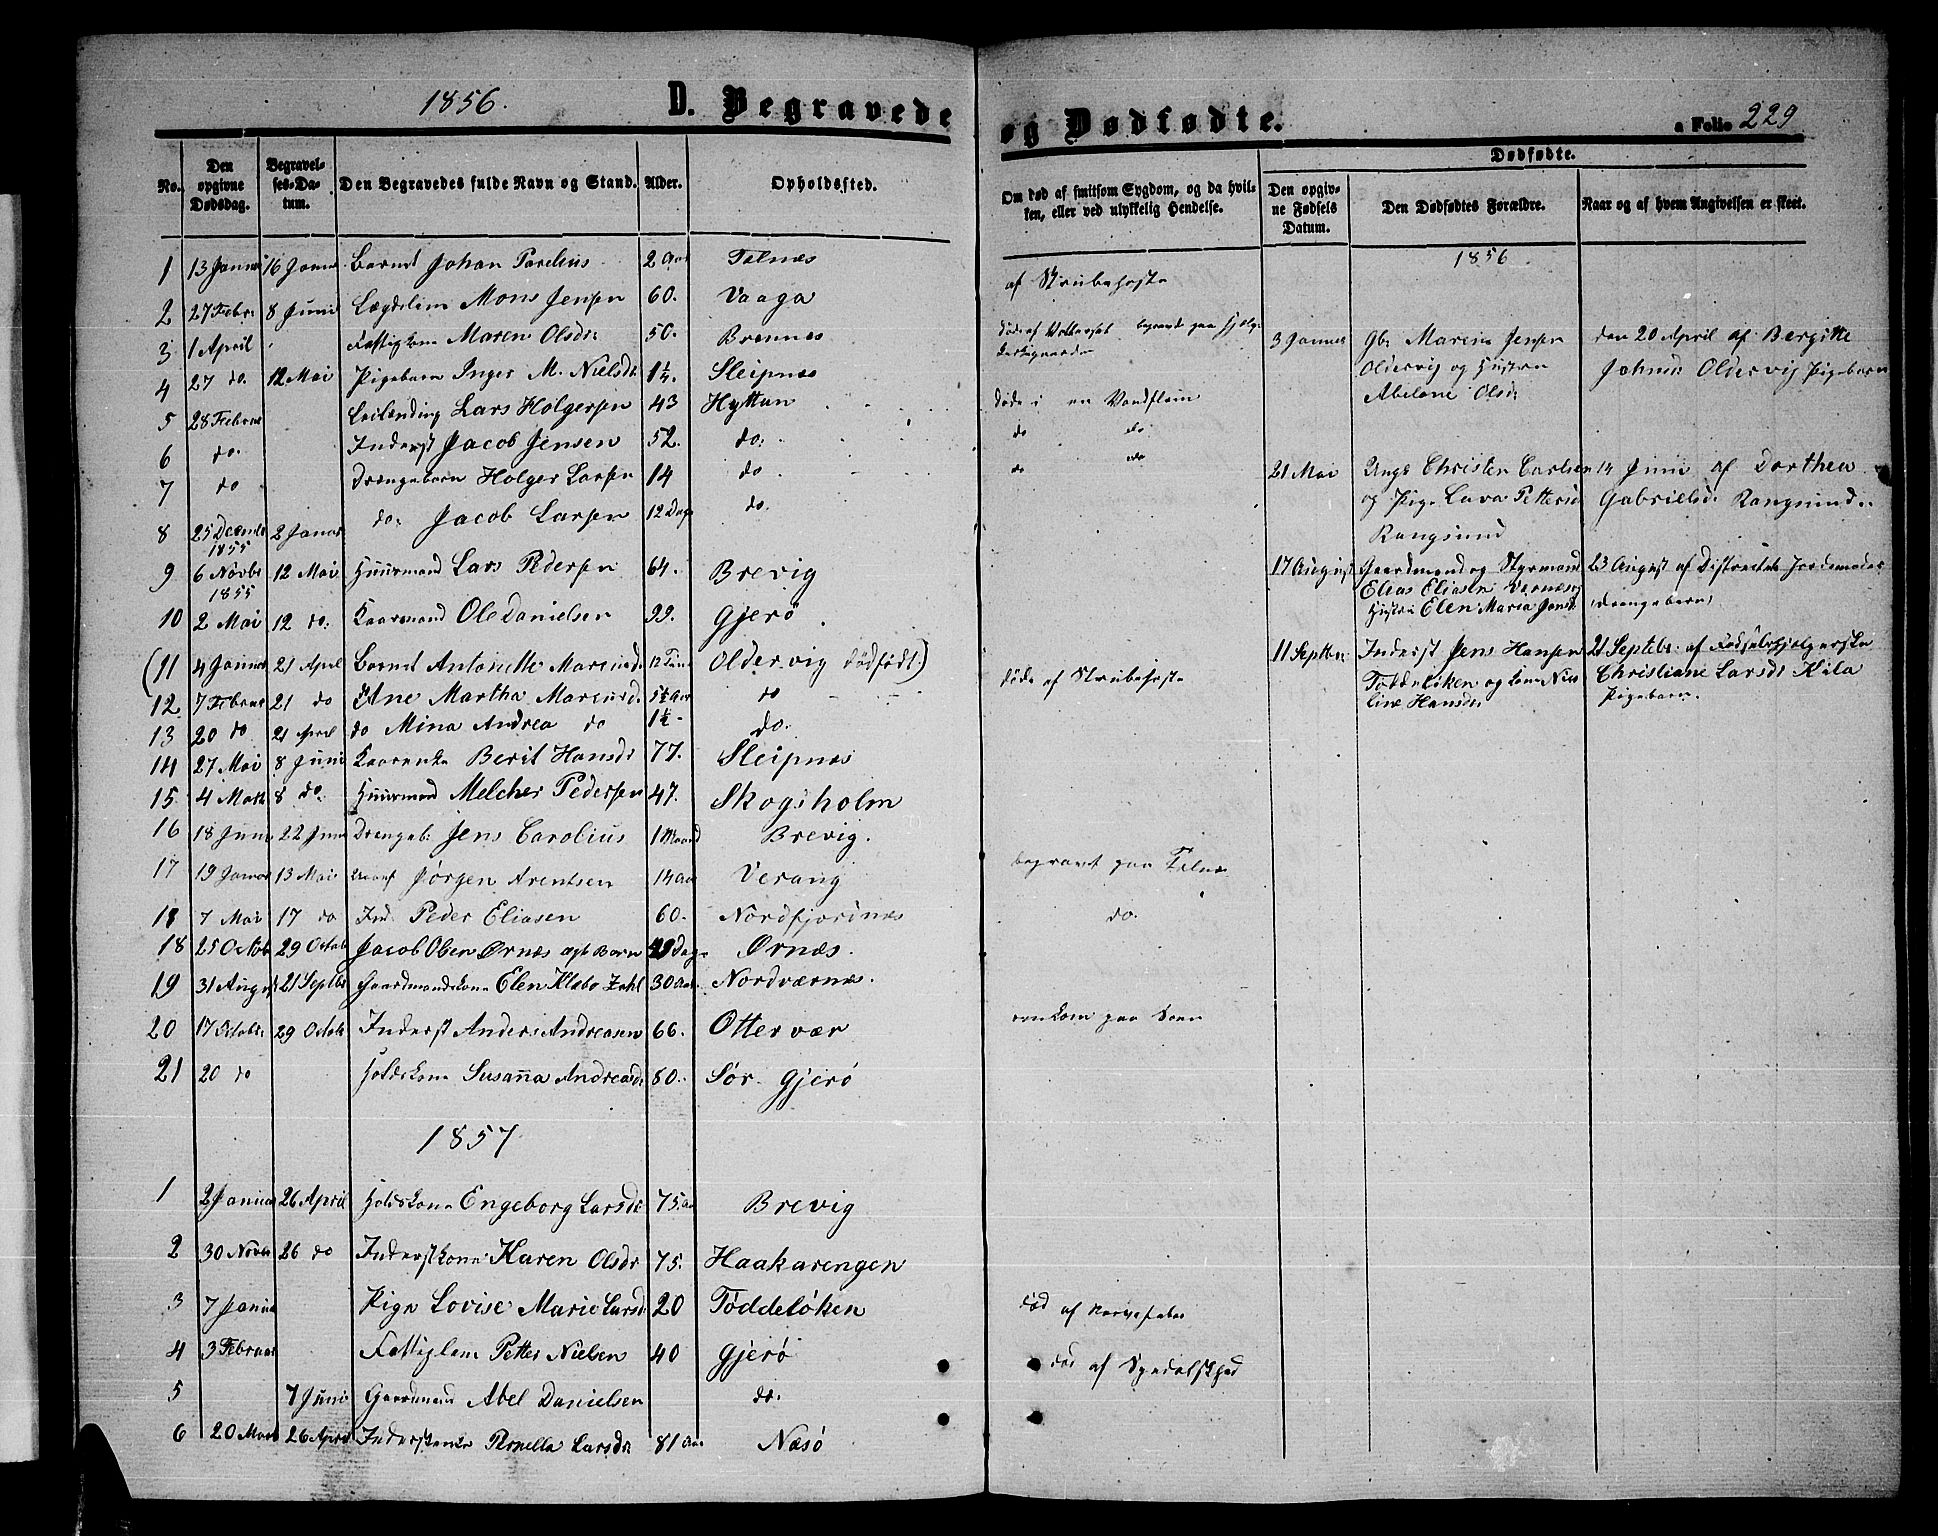 1856.
D. Begravede og Dødfødte.
a Folio 229
No. Den opgivne Dødsdag. Begravelses-Datum. Den Begravedes fulde Navn og Stand. Alder. Opholdssted.
Om død af smitsom Sygdom, og da hvilken, eller ved ulykkelig Hendelse.
Dødfødte.
Den opgivne Fødsels Datum. Den Dødfødtes Forældre. Naar og af hvem Angivelsen er skeet.
1 13 Januar 16 Januar Barnet Johan Parelius 2 Aar Telnæs af Strubehoste
2 27 Febr: 8 Juni Lægdslem Mons Jensen 60. Vaaga
3 1 April Fattigkone Maren Olsdr 50. Brennæs
4 27 do. 12 Mai Pigebarn Inger M. Nielsdr 1¼. Sleipnæs
5 28 Februar Leilænding Lars Holgersen 43 Hyttan døde i en Vandflom
6 do. Inderst Jacob Jensen 52. do. do do
7 do Drengebarn Holger Larsen 14 do do do
8 25 Decembr 1855 2 Januar do. Jacob Larsen 12 Dage do.
9 6 Novbr 1855 12 Mai Huusmand Lars Pedersen 64. Brevig
10 2 Mai 12 do. Kaarmand Ole Danielsen 99. Gjerø
(11 4 Januar 21 April Barnet Antonette 12 Oldervig dødfødt)
12 7 Februar 21 do Ane Martha 5½ Aar do døde af Strubehoste
13 20 do 21 April do Mina Andrea do 1½ do.
14 27 Mai 8 Juni Kaarenke Berit Hansdr 77. Sleipnæs
15 4 8 do. Huusmand Melcher Pedersen 47. Skogsholm
16 18 Juni 22 Juni Drengeb: Jens Carolius 1 Maaned Brevig.
17 19 Januar 13 Mai Jørgen Arentsen 14 Aar Verang begravet paa Telnæs
18 7 Mai 17 do Ind. Peder Eliasen 60. Nordfjordnæs do.
18 25 Octob 29 Octob Jacob Olsen Ørnæs Barn Dage Ørnæs.
19 31 August 21 Septbr Gaardmandskone Elen Klæbo Zahl 30 Aar Nordværnæs.
20 17 Octobr 29 Octob Inderst Anders Andreasen 66. Ottervær omkom paa Søen
21 20 do Holdskone Susanna Andreasdr 80. Sør-Gjerø
1856
3 Januar Gbr Jensen Oldervig og Hustru Abelone Olsdr den 20 April af Bergitte Oldervig Pigebarn
21 Mai Ungk Christen Carlsen og Pige Lava Pettersd Rangsund 14 Juni af Dorthea Gabrielsd. Rangsund
17 August Gaardmand og Styrmand Elias Eliasen Værnæs Hustru Elen Maria 23 August af Districtets Jordemoder (Drengebarn)
11 Septbr: Inderst Jens Hansen Tøddeløken og Kone line Hansdr 21 Septebr. af Fødselshjelperske Christiane Larsdr Kila Pigebarn.
1857
1 2 Januar 26 April Holdskone Engeborg Larsdr 75. Aar Brevig
2 30 Novbr 26 do Inderstkone Karen Olsdr 75. Haakarengen
3 7 Januar Pige Lovise Marie Larsd 20 Tøddeløken død af Nervefeber
4 3 Februar Fattiglem Petter Nielsen 40 Gjerø død af Spedalskhed
5 7 Juni Gaardmand Abel Danielsen do.
6 20 Marts 26 April Inderstenke Pernella Larsdr 81 Aar Næsø